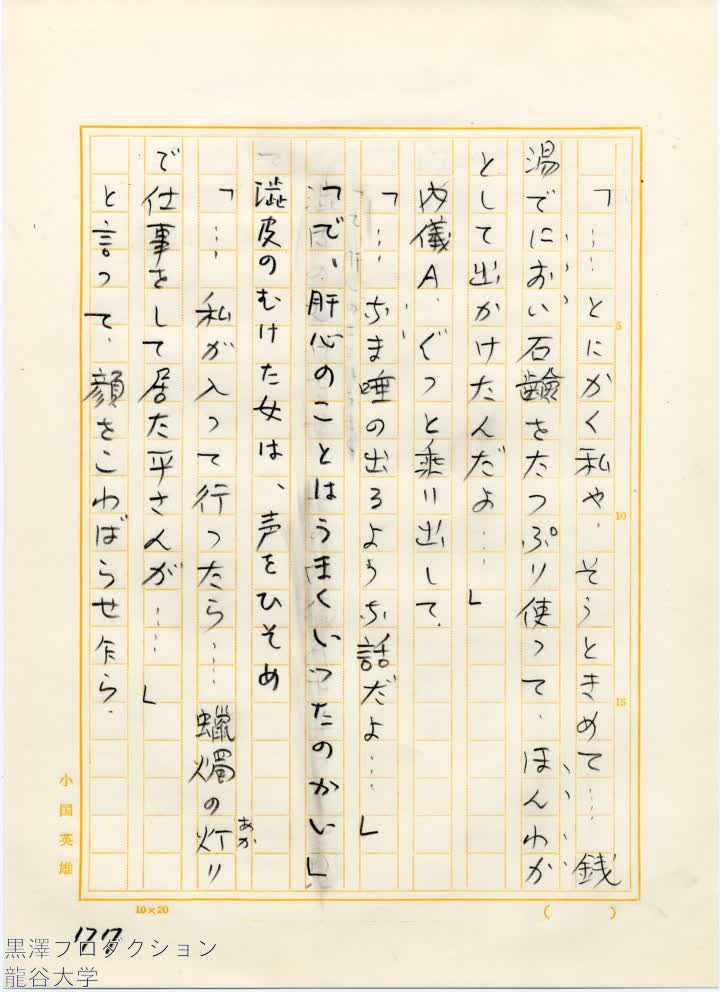 「…とにかく私や、そうときめて…銭
湯でにおい石鹸をたっぷり使って、ほんわか
として出かけたんだよ…」
内儀A、ぐっと乗り出して、
「…なま唾の出るような話だよ…」
「で、肝心のことはうまくいったのかい」
澁皮のむけた女は、声をひそめ
「…私が入って行ったら…蠟燭の灯り
あか
で仕事をして居た平さんが…」
と言って、顔をこわばらせ乍ら、
5
10
15
小国英雄
10×20
( )
177
黒澤プロダクション
龍谷大学